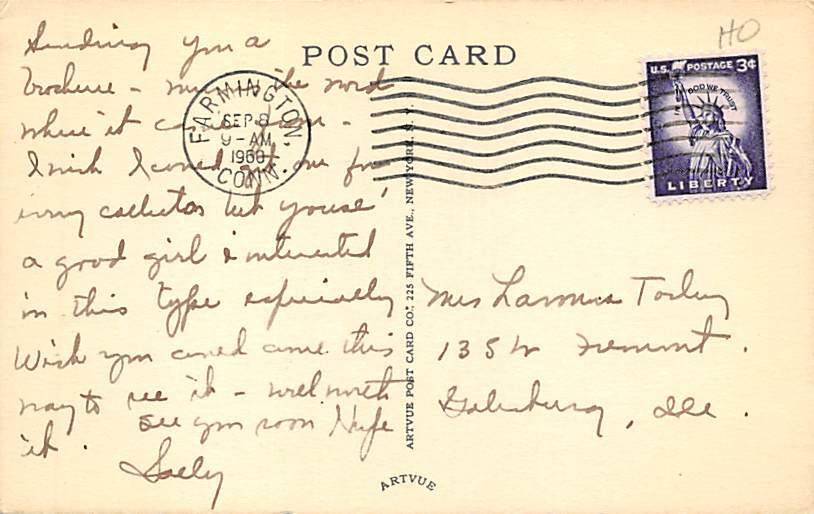 HO
POST CARD
U.S. POSTAGE 3¢
IN GOD WE TRUST
LIBERTY
FARMINGTON,
SEP 8
9-AM
1960
CONN.
Sending you a
brochure - the word
where it came from -
I wish I could get one for
my collection but
a good girl interested
in this type especially
Wish you could come this
way to see it - well worth
it. see you soon
Sally
ARTVUE POST CARD CO., 225 FIFTH AVE., NEW YORK, N. Y.
ARTVUE
Mrs
135 W Fremont.
Galesburg, Ill.